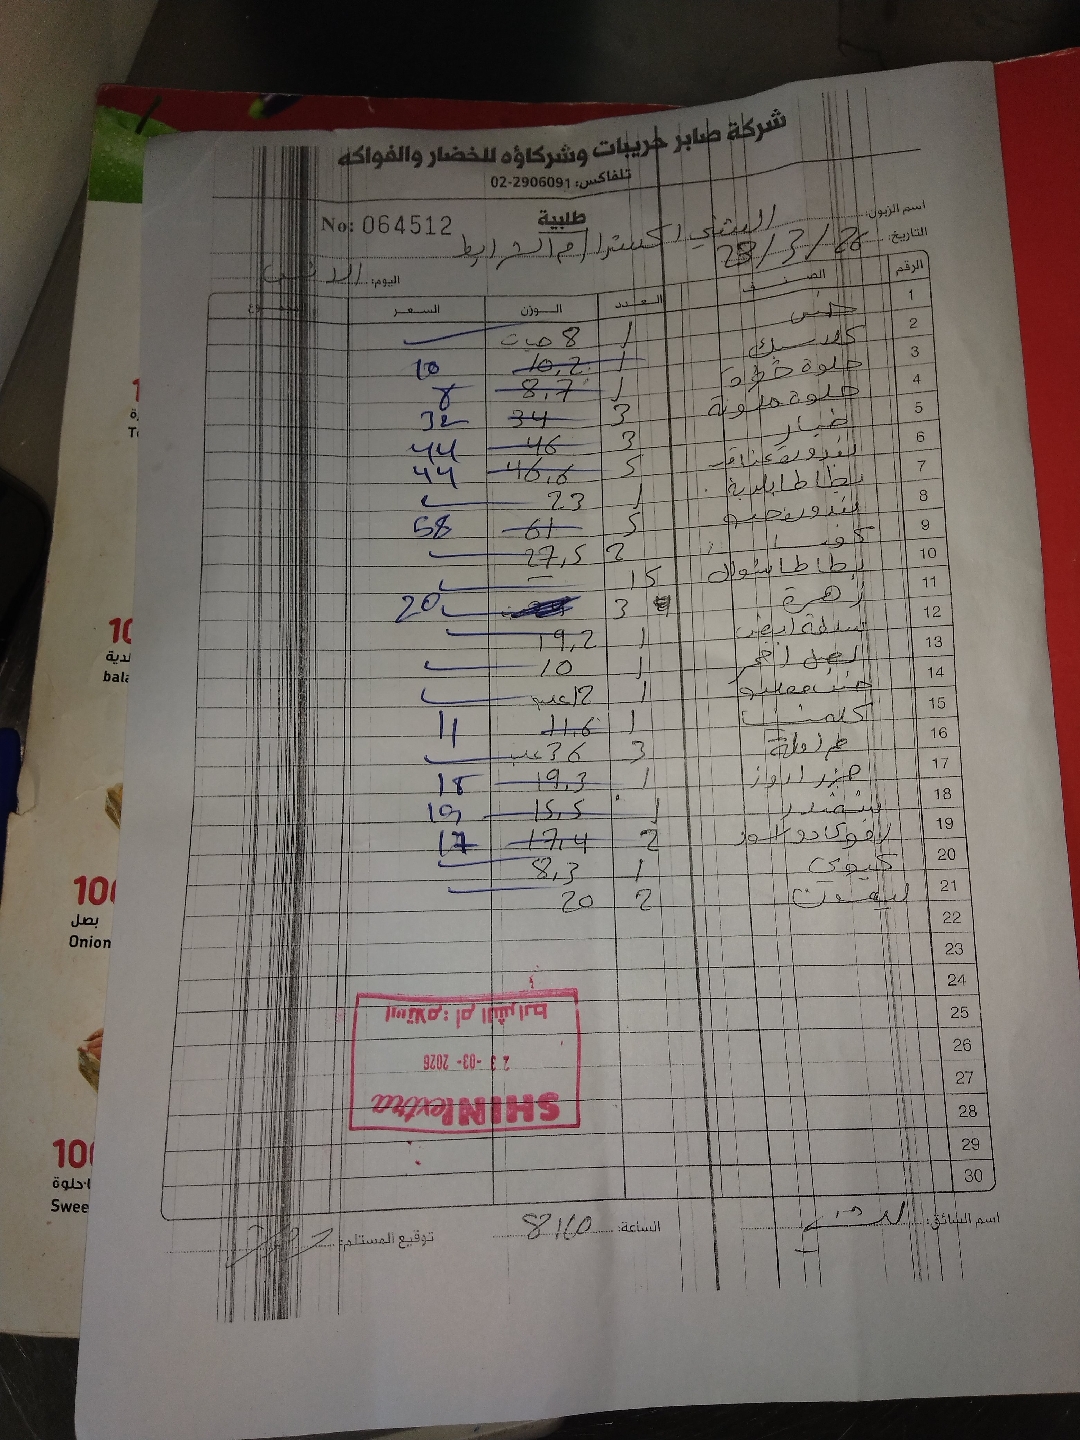 شركة صابر حريبات وشركاؤه للخضار والفواكه
تلفاكس: 02-2906091
No: 064512
طلبية
اسم الزبون: الشني اكسترا / ام الشرايط
التاريخ: 23/3/26
اليوم: الاثنين
الرقم الصنف العدد الوزن السعر المجموع
1 خس 1 8 حبات
2 كلاسيك 1 10,2 10
3 حلوة 1 8,7 8
4 حلوة ملونة 3 34 32
5 خيار 3 46 44
6 بندورة عناقيد 5 46,6 44
7 بطاطا بلدية 1 23
8 بندورة حبة 5 61 58
9 كوسا 2 27,5
10 بطاطا شوال 15 –
11 زهرة 3 20
12 ابيض 1 19,2
13 بصل احمر 1 10
14 1 12 علبة
15 كلمنتينا 1 11,6 11
16 فراولة 3 36 علبة
17 جزر 1 19,3 18
18 شمندر 1 15,5
19 افوكادو 2 17,4 17
20 كيوي 1 8,3
21 ليمون 2 20
22
23
24
25
26
27
28
29
30
استلام: ام الشرايط
23 -03- 2026
SHINI extra
اسم السائق:
الساعة: 8:10
توقيع المستلم:
100
بصل
Onion
100
حلوة
Swee